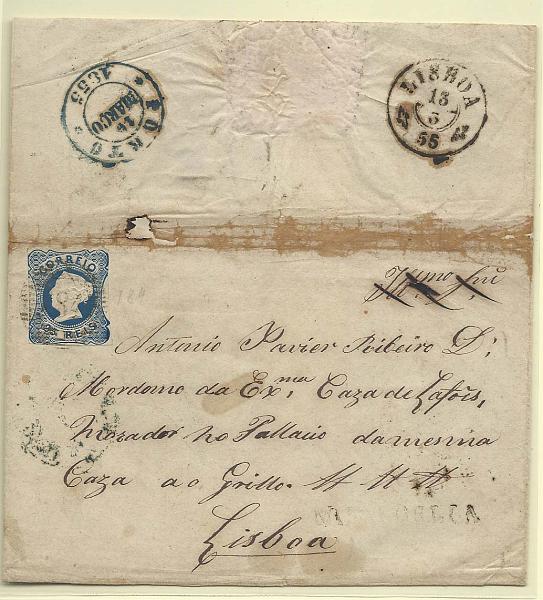 PORTO
MARÇO
1855
LISBOA
13
3
55
CORREIO
REIS
Illmo Snr
Antonio Xavier Ribeiro D:
Mordomo da Exma Caza de Lafões,
Morador no Pallacio da mesma
Caza ao Grillo.
Lisboa